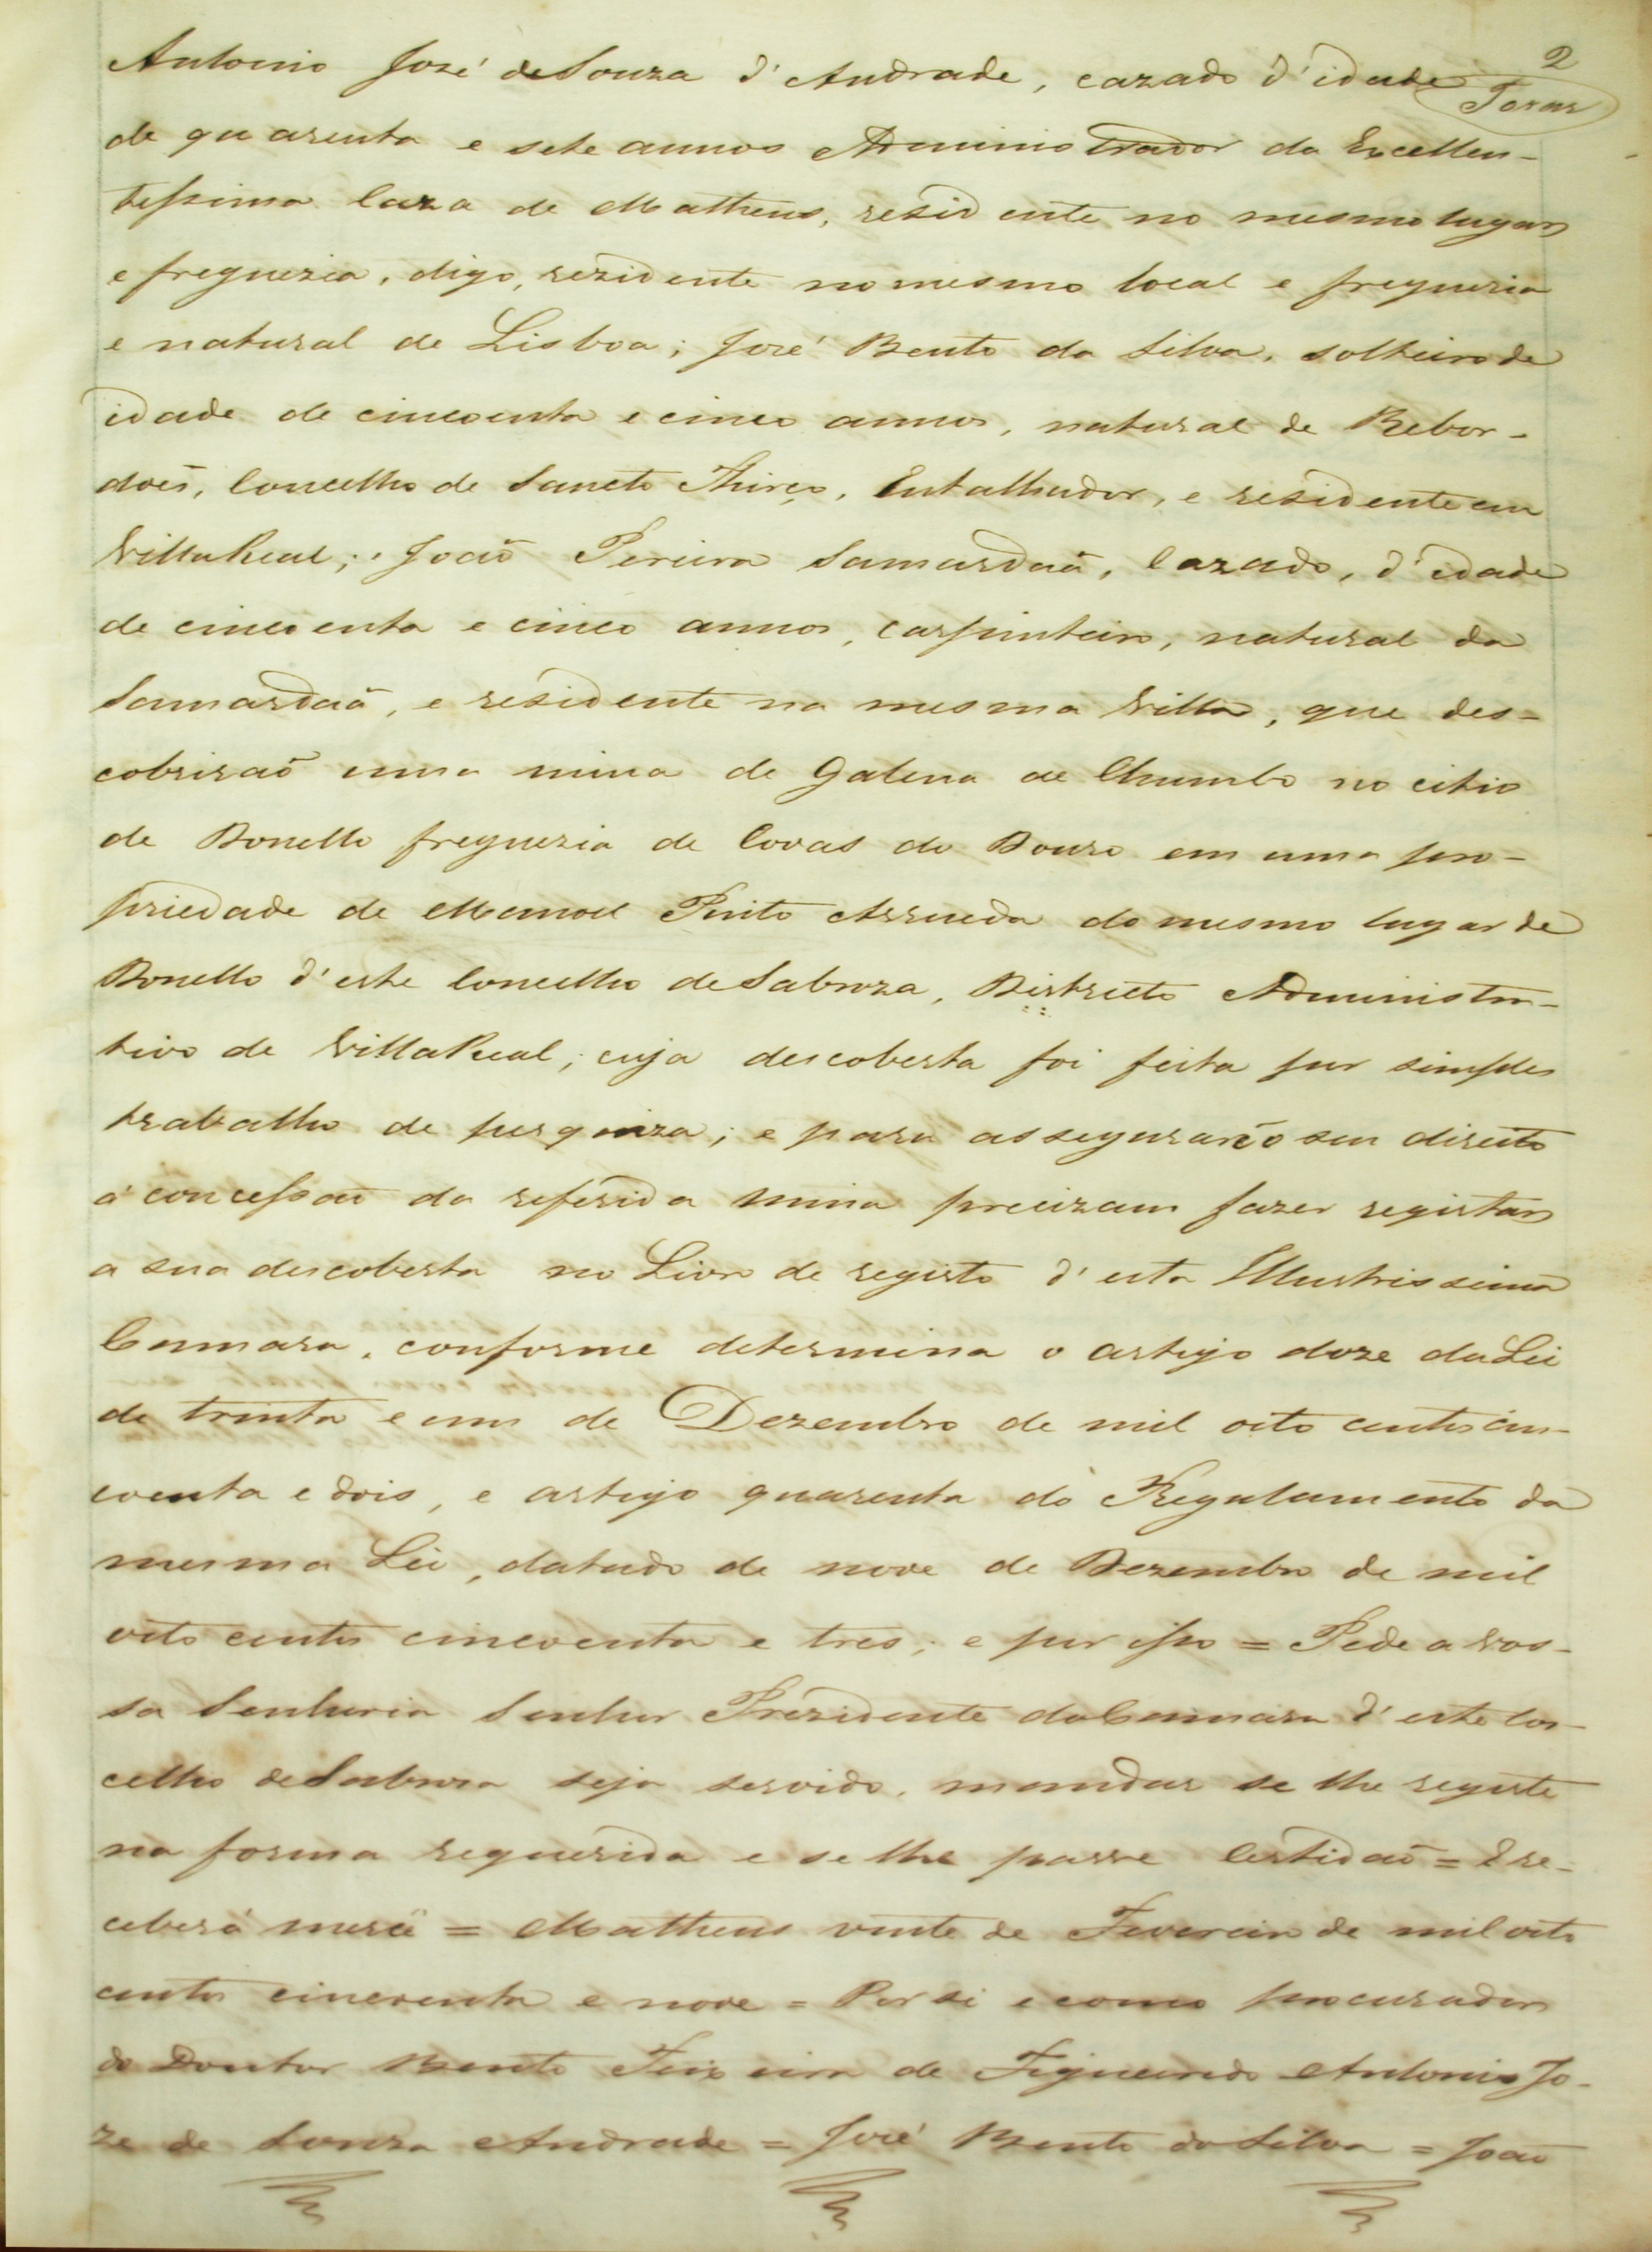 2
Antonio José de Souza d'Andrade, cazado d'idade
de quarenta e sete annos Administrador da Excellen-
tissima Caza de Matheus, rezidente no mesmo lugar
e freguezia, digo, rezidente no mesmo local e freguezia
e natural de Lisboa; José Bento da Silva, solteiro de
idade de cincoenta e cinco annos, natural de Rebor-
does, Concelho de Sancto Thirço, Entalhador, e residente em
Villa Real; João Pereira Samardaã, Cazado, d'idade
de cincoenta e cinco annos, carpinteiro, natural da
Samardaã, e residente na mesma Villa, que des-
cobrirão uma mina de Galena de Chumbo no citio
de Donello freguezia de Covas do Douro em uma pro-
priedade de Manoel Pinto Arrueda do mesmo lugar de
Donello d'este Concelho de Sabroza, Districto Administra-
tivo de Villa Real; cuja descoberta foi feita por simples
trabalho de pesquiza; e para assegurar o seu direito
á concessão da referida mina precizam fazer registar
a sua descoberta no Livro de registo d'esta Illustrissima
Camara, conforme determina o artigo doze da Lei
de trinta e um de Dezembro de mil oito centos cin-
coenta e dois, e artigo quarenta do Regulamento da
mesma Lei, datado de nove de Dezembro de mil
oito centos cincoenta e tres; e por isso = Pede a Vos-
sa Senhoria Senhor Prezidente da Camara d'este Con-
celho de Sabroza seja servido, mandar se lhe registe
na forma requerida e se lhe passe Certidão = E re-
ceberá mercê = Matheus vinte de Fevereiro de mil oito
centos cincoenta e nove = Por si e como procurador
do Doutor Bento Teixeira de Figueiredo Antonio Jo-
ze de Souza Andrade = José Bento da Silva = João